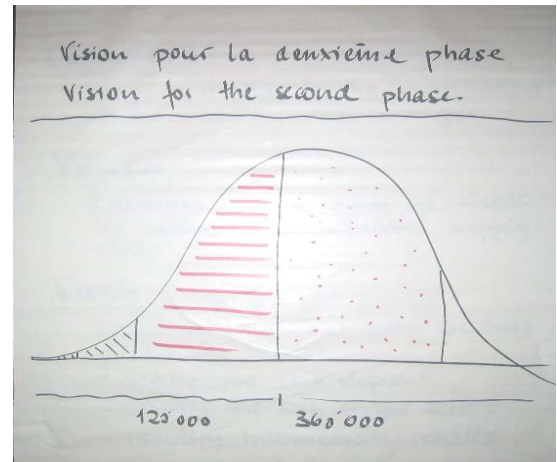 Vision pour la deuxième phase
Vision for the second phase.
120'000 360'000